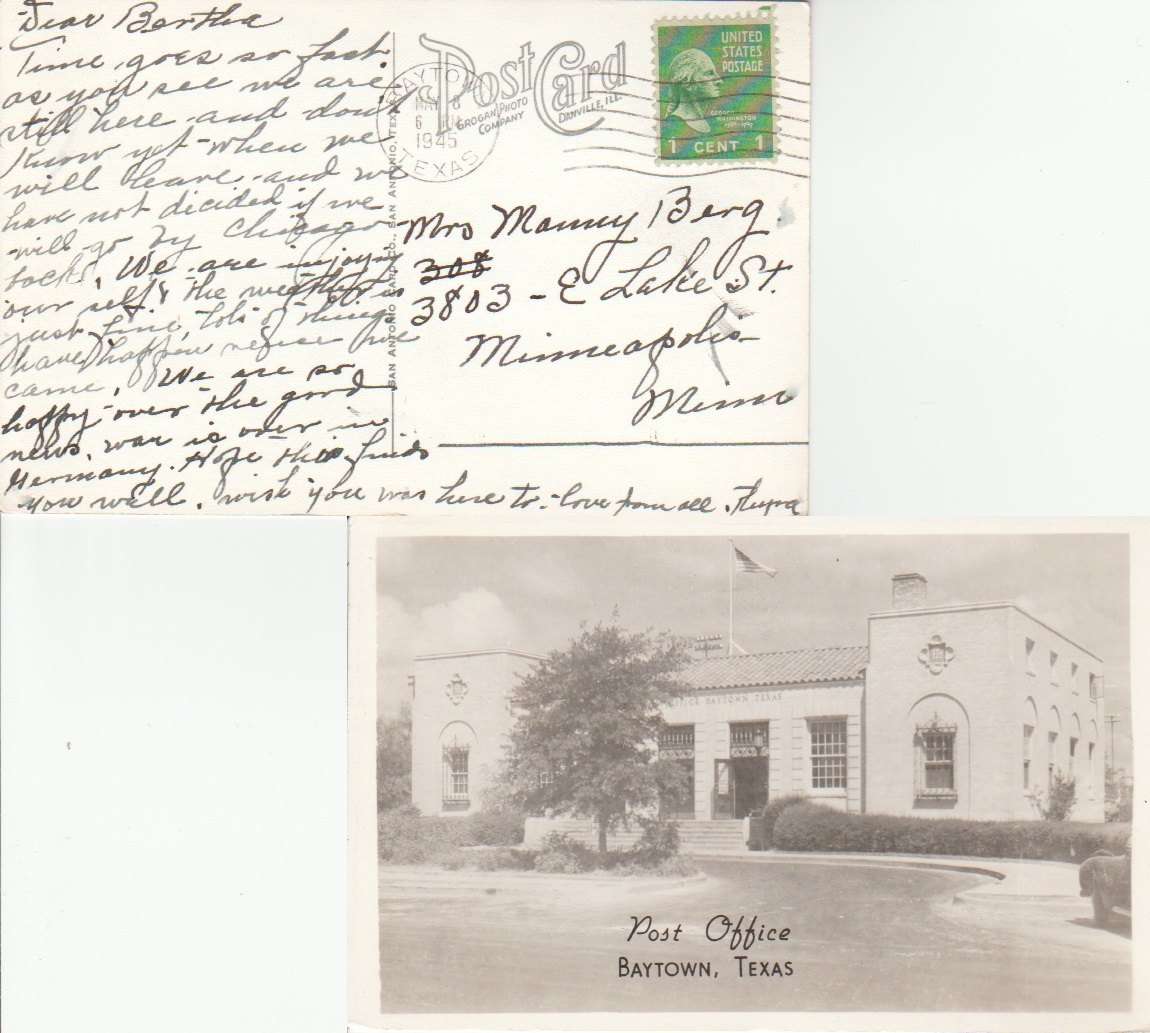 Dear Bertha
Time goes so fast
as you see we are
still here and don't
know yet when we
will leave and we
have not decided if we
will go by Chicago
back. We are injoying
our self & the weather is
just fine, lots of things
have happen since we
came. We are so
happy over the good
news. war is over in
Germany. Hope this finds
you well. wish you was here to - love from all.
Post Card
GROGAN PHOTO
COMPANY
DANVILLE, ILL.
BAYTOWN
MAY 8
6 PM
1945
TEXAS
UNITED
STATES
POSTAGE
GEORGE
WASHINGTON
1789-1797
1 CENT 1
SAN ANTONIO CARD CO., SAN ANTONIO, TEXAS
Mrs Manny Berg
308
3803 - E Lake St.
Minneapolis
Minn
OFFICE BAYTOWN TEXAS
Post Office
BAYTOWN, TEXAS